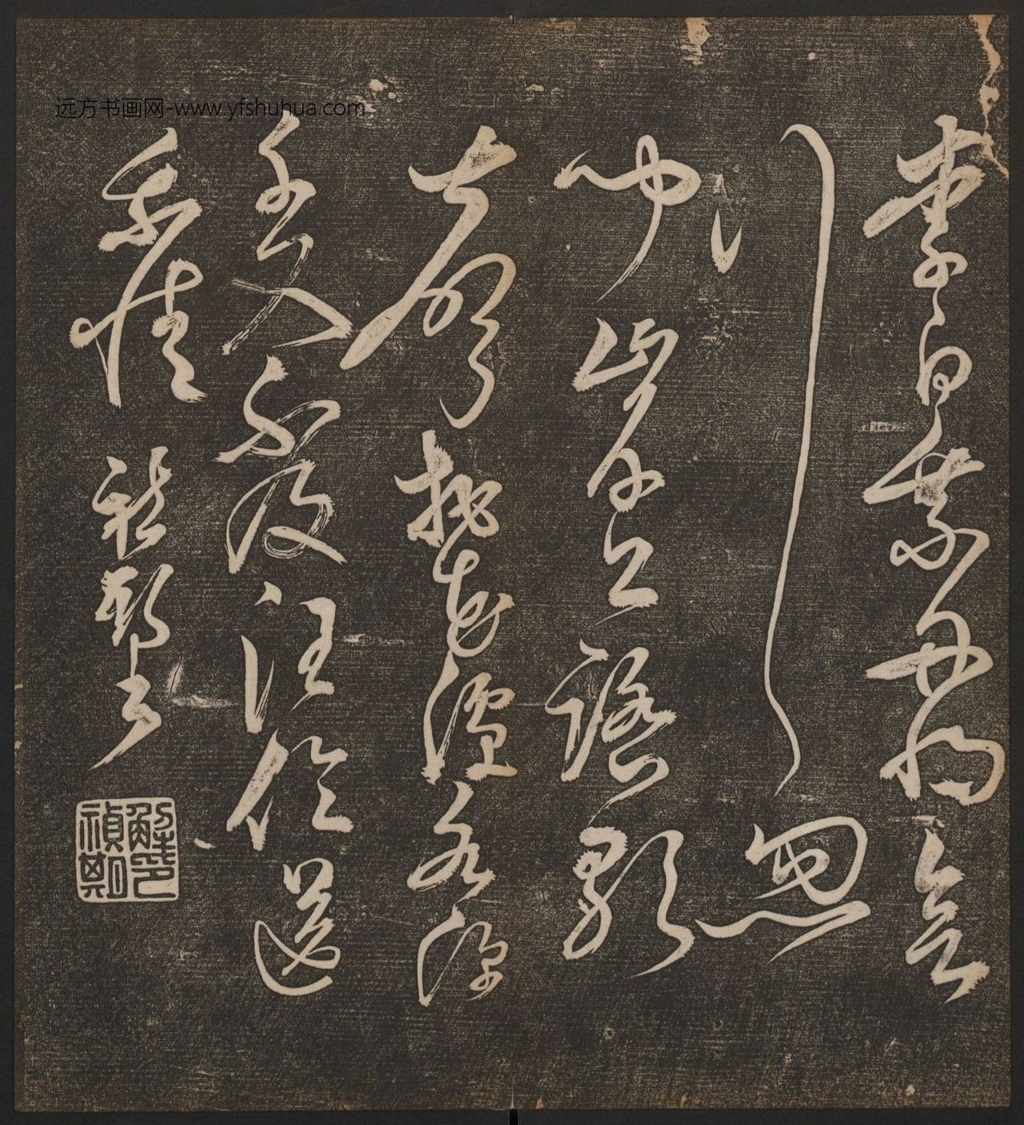 李白乘舟將欲行
忽
聞岸上踏歌
聲桃花潭水深
千尺不及汪倫送
我情 禎期書
解印
禎期
远方书画网-www.yfshuhua.com